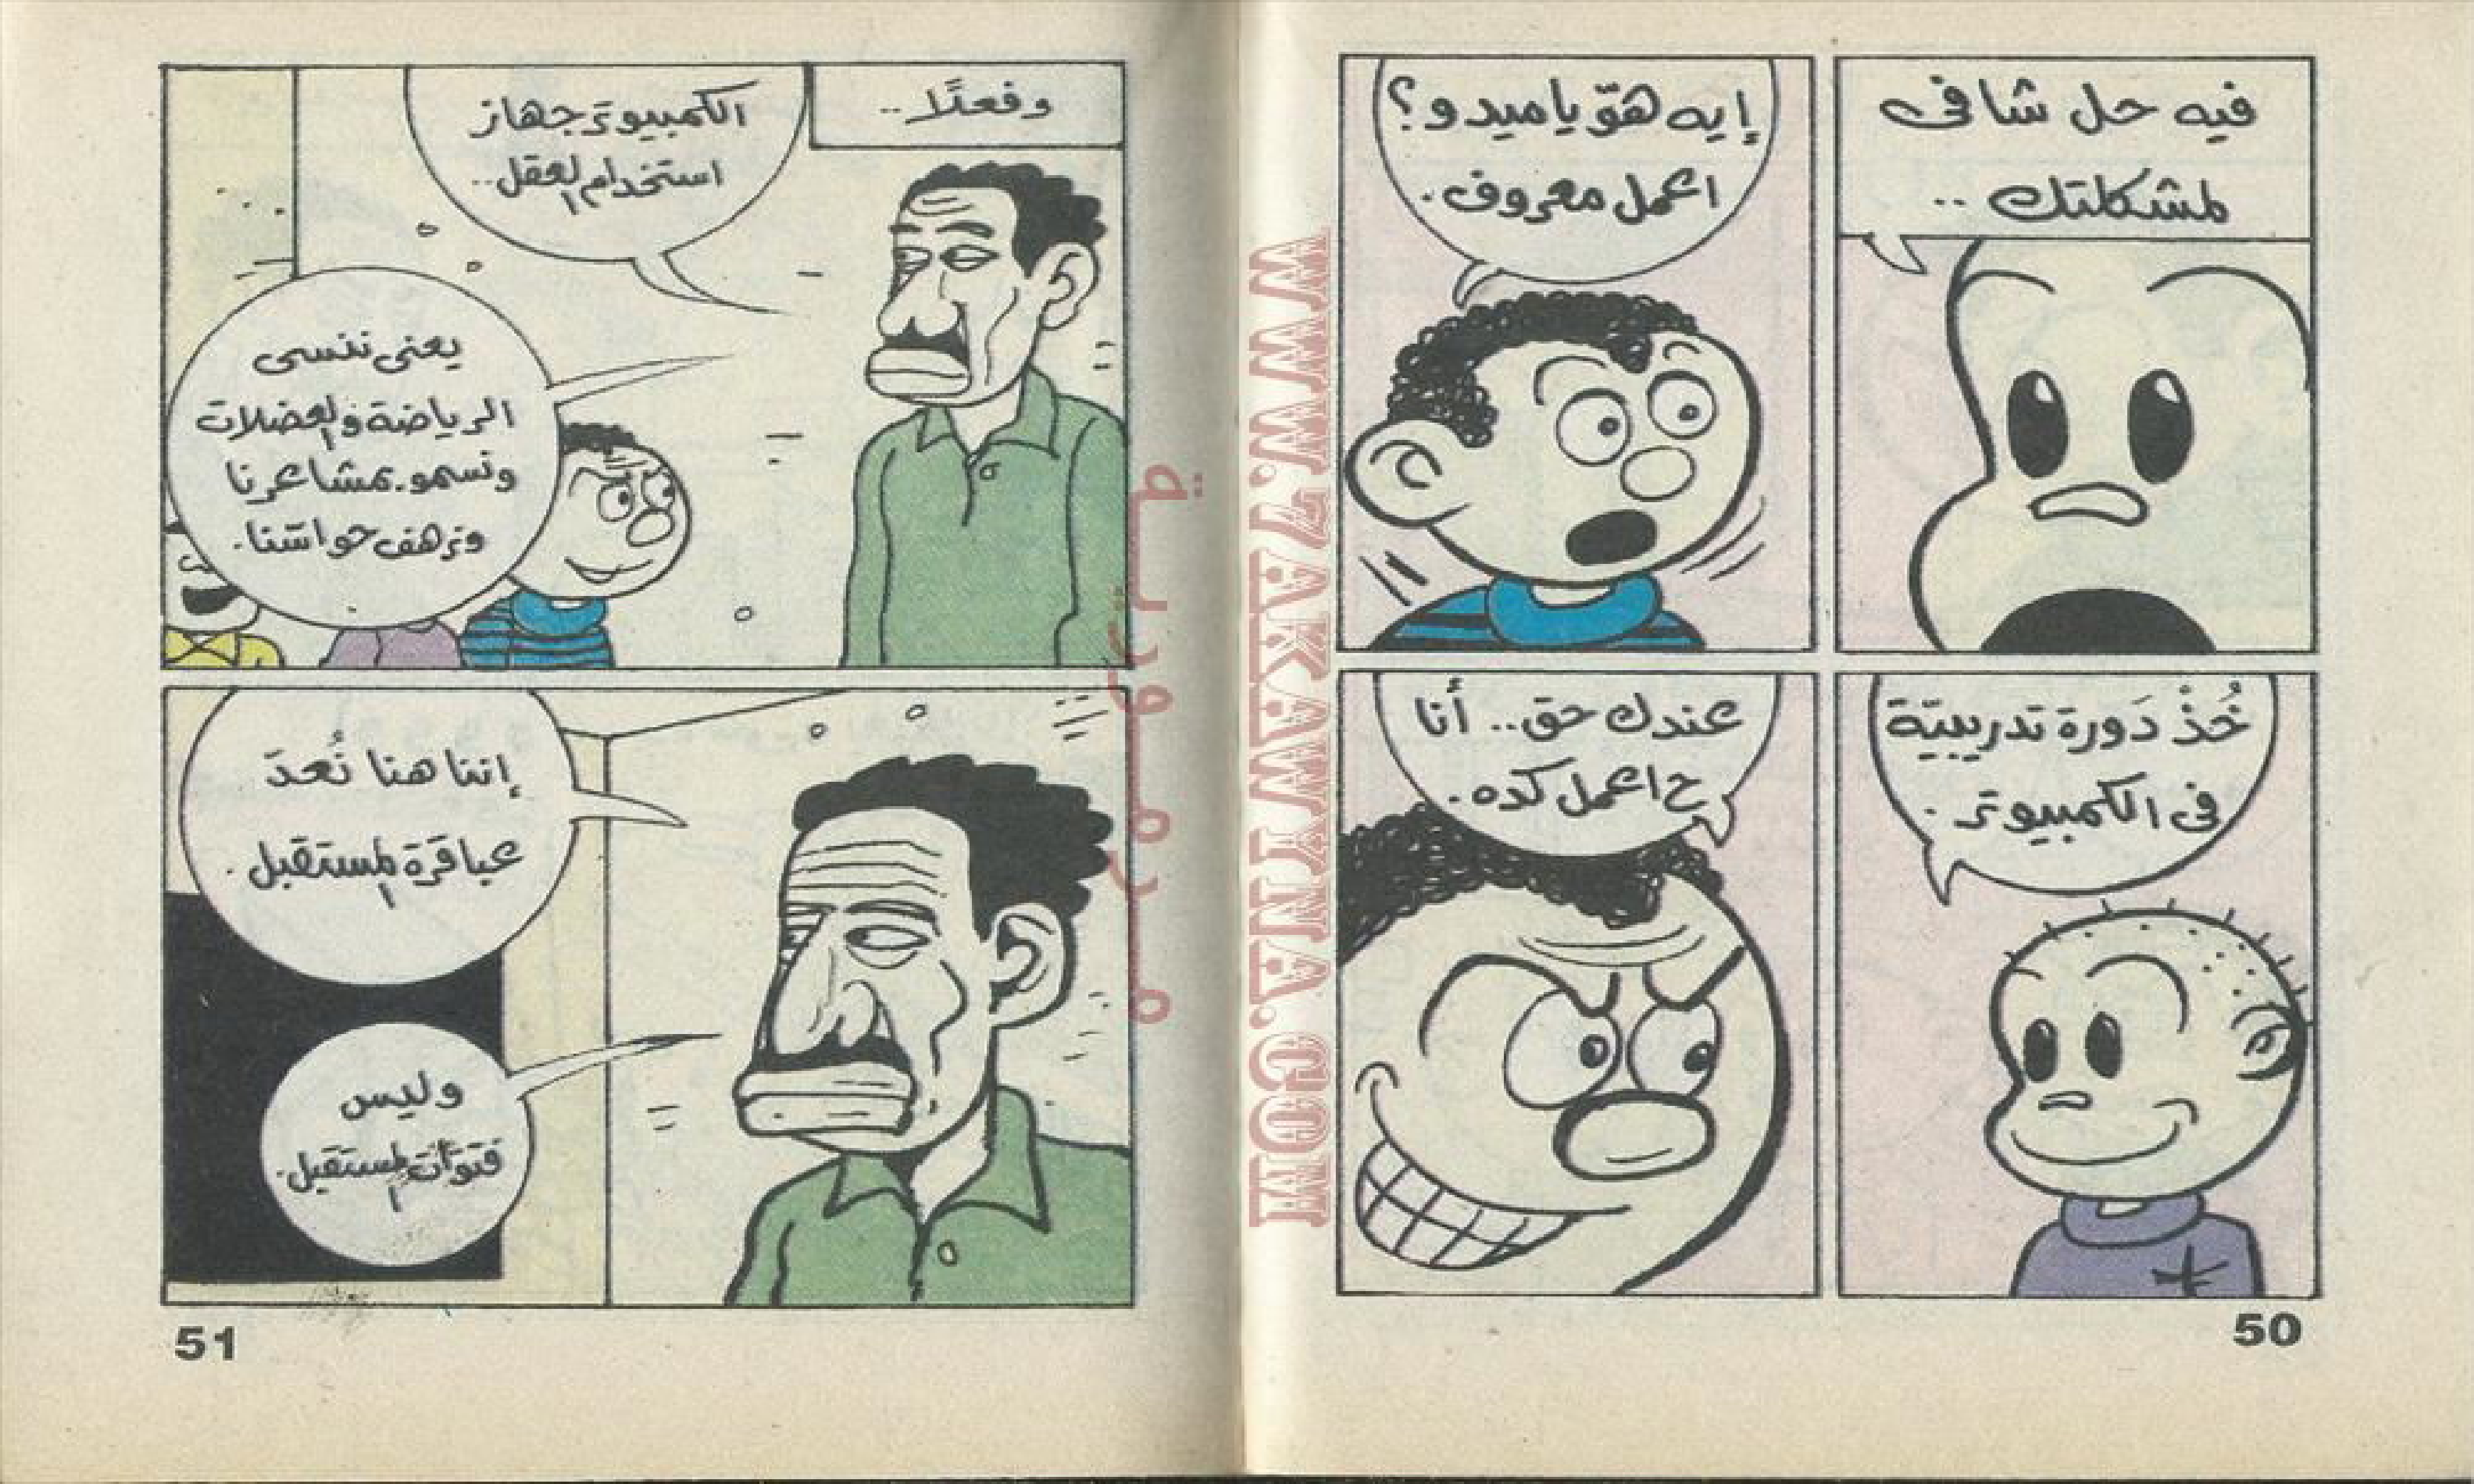 فيه حل شافى
لمشكلتك ..
إيه هوّ يا ميدو؟
اعمل معروف.
خُذْ دَورة تدريبيّة
فى الكمبيوتر.
عندك حق.. أنا
ح اعمل كده.
50
وفعلًا..
الكمبيوتر جهاز
استخدام العقل..
يعنى ننسى
الرياضة والعضلات
ونسمو بمشاعرنا
ونرهف حواسّنا.
إننا هنا نُعدّ
عباقرة المستقبل.
وليس
فتوّات المستقبل.
51